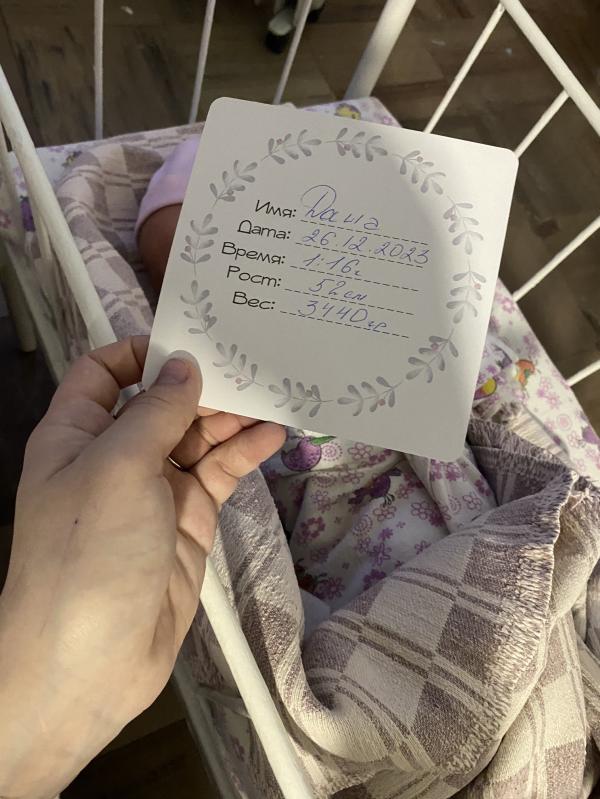 Имя: Даша
Дата: 26.12.2023
Время: 1:16г
Рост: 52см
Вес: 3440гр